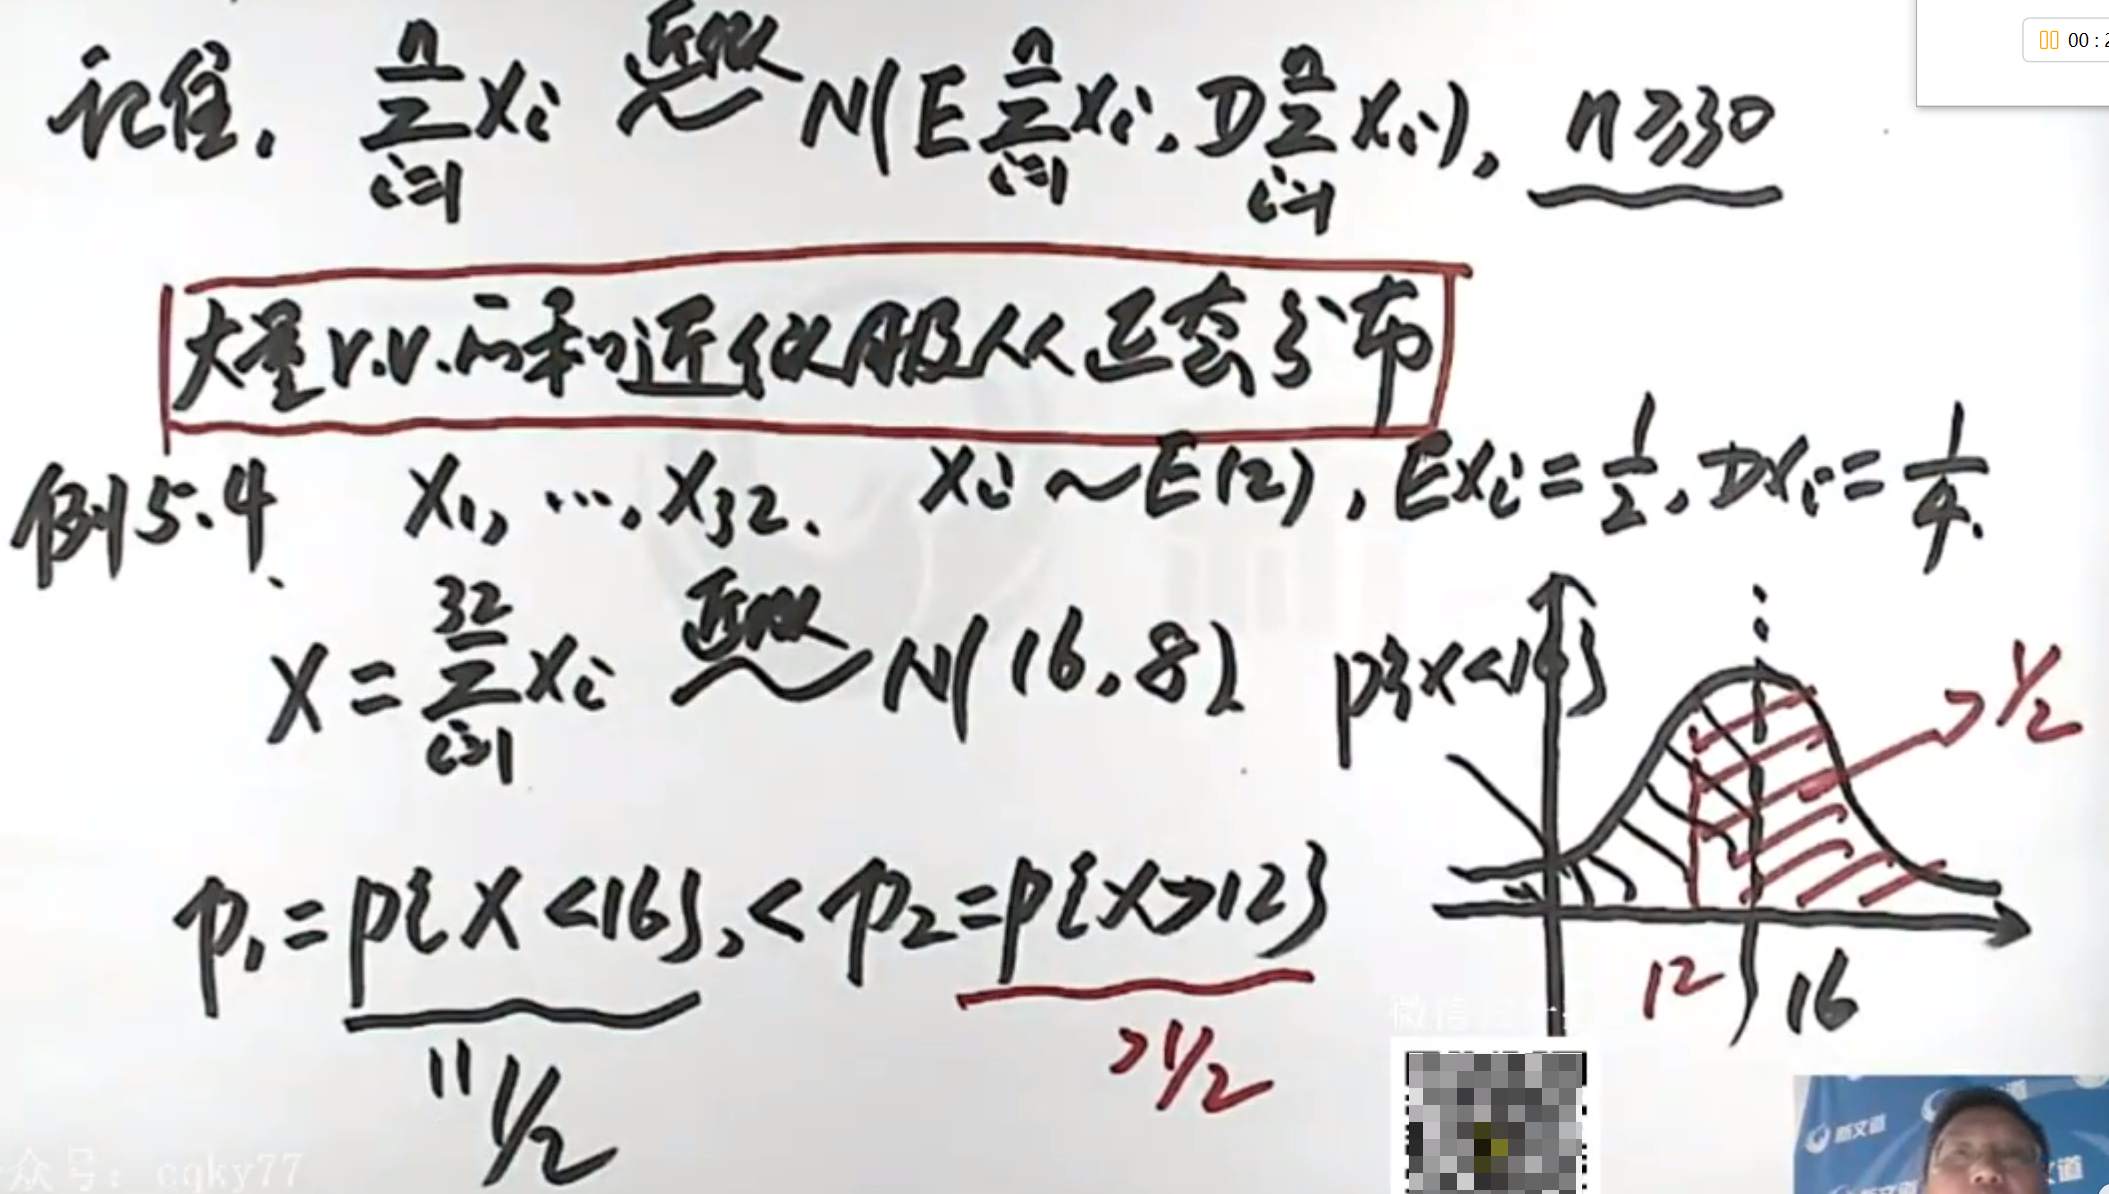 00:2
记住, ∑_{i=1}^{n} Xi 近似~ N(E∑_{i=1}^{n} Xi, D∑_{i=1}^{n} Xi), n≥30
大量r.v.的和近似服从正态分布
例5.4、 X1, …, X32. Xi ~ E(2), EXi = 1/2, DXi = 1/4.
X = ∑_{i=1}^{32} Xi 近似~ N(16, 8)
P{X<16}
>1/2
p1 = P{X<16}, < p2 = P{X>12}
12 16
= 1/2
>1/2
微信
众号: cqky77
新文道
文道